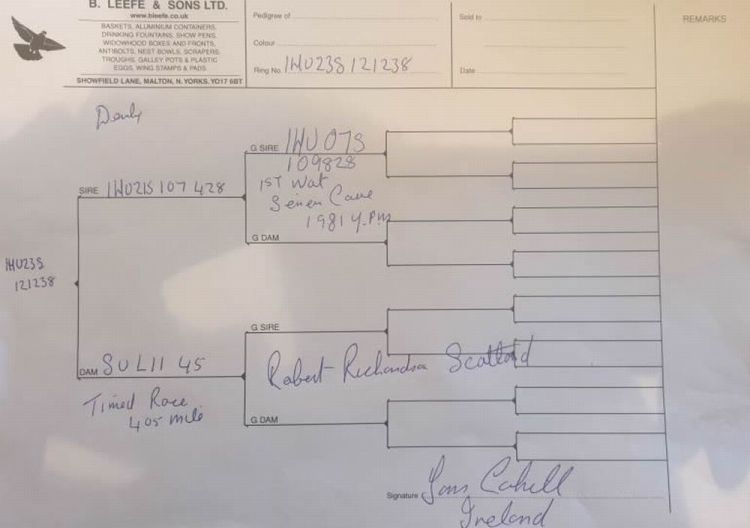 B. LEEFE & SONS LTD.
www.bleefe.co.uk
BASKETS, ALUMINIUM CONTAINERS,
DRINKING FOUNTAINS, SHOW PENS,
WIDOWHOOD BOXES AND FRONTS,
ANTIBOLTS, NEST BOWLS, SCRAPERS,
TROUGHS, GALLEY POTS & PLASTIC
EGGS, WING STAMPS & PADS
SHOWFIELD LANE, MALTON, N. YORKS. YO17 6BT
Pedigree of
Colour
Ring No. IHU23S 121238
Sold to
Date
REMARKS
G SIRE IHU 07S
109828
1ST Nat
1981 Y.P.M
SIRE IHU21S 107 428
G DAM
IHU23S
121238
G SIRE
DAM SU L11 45
Robert Richardson Scotland
Timed Race
405 mile
G DAM
Signature Cahill
Ireland